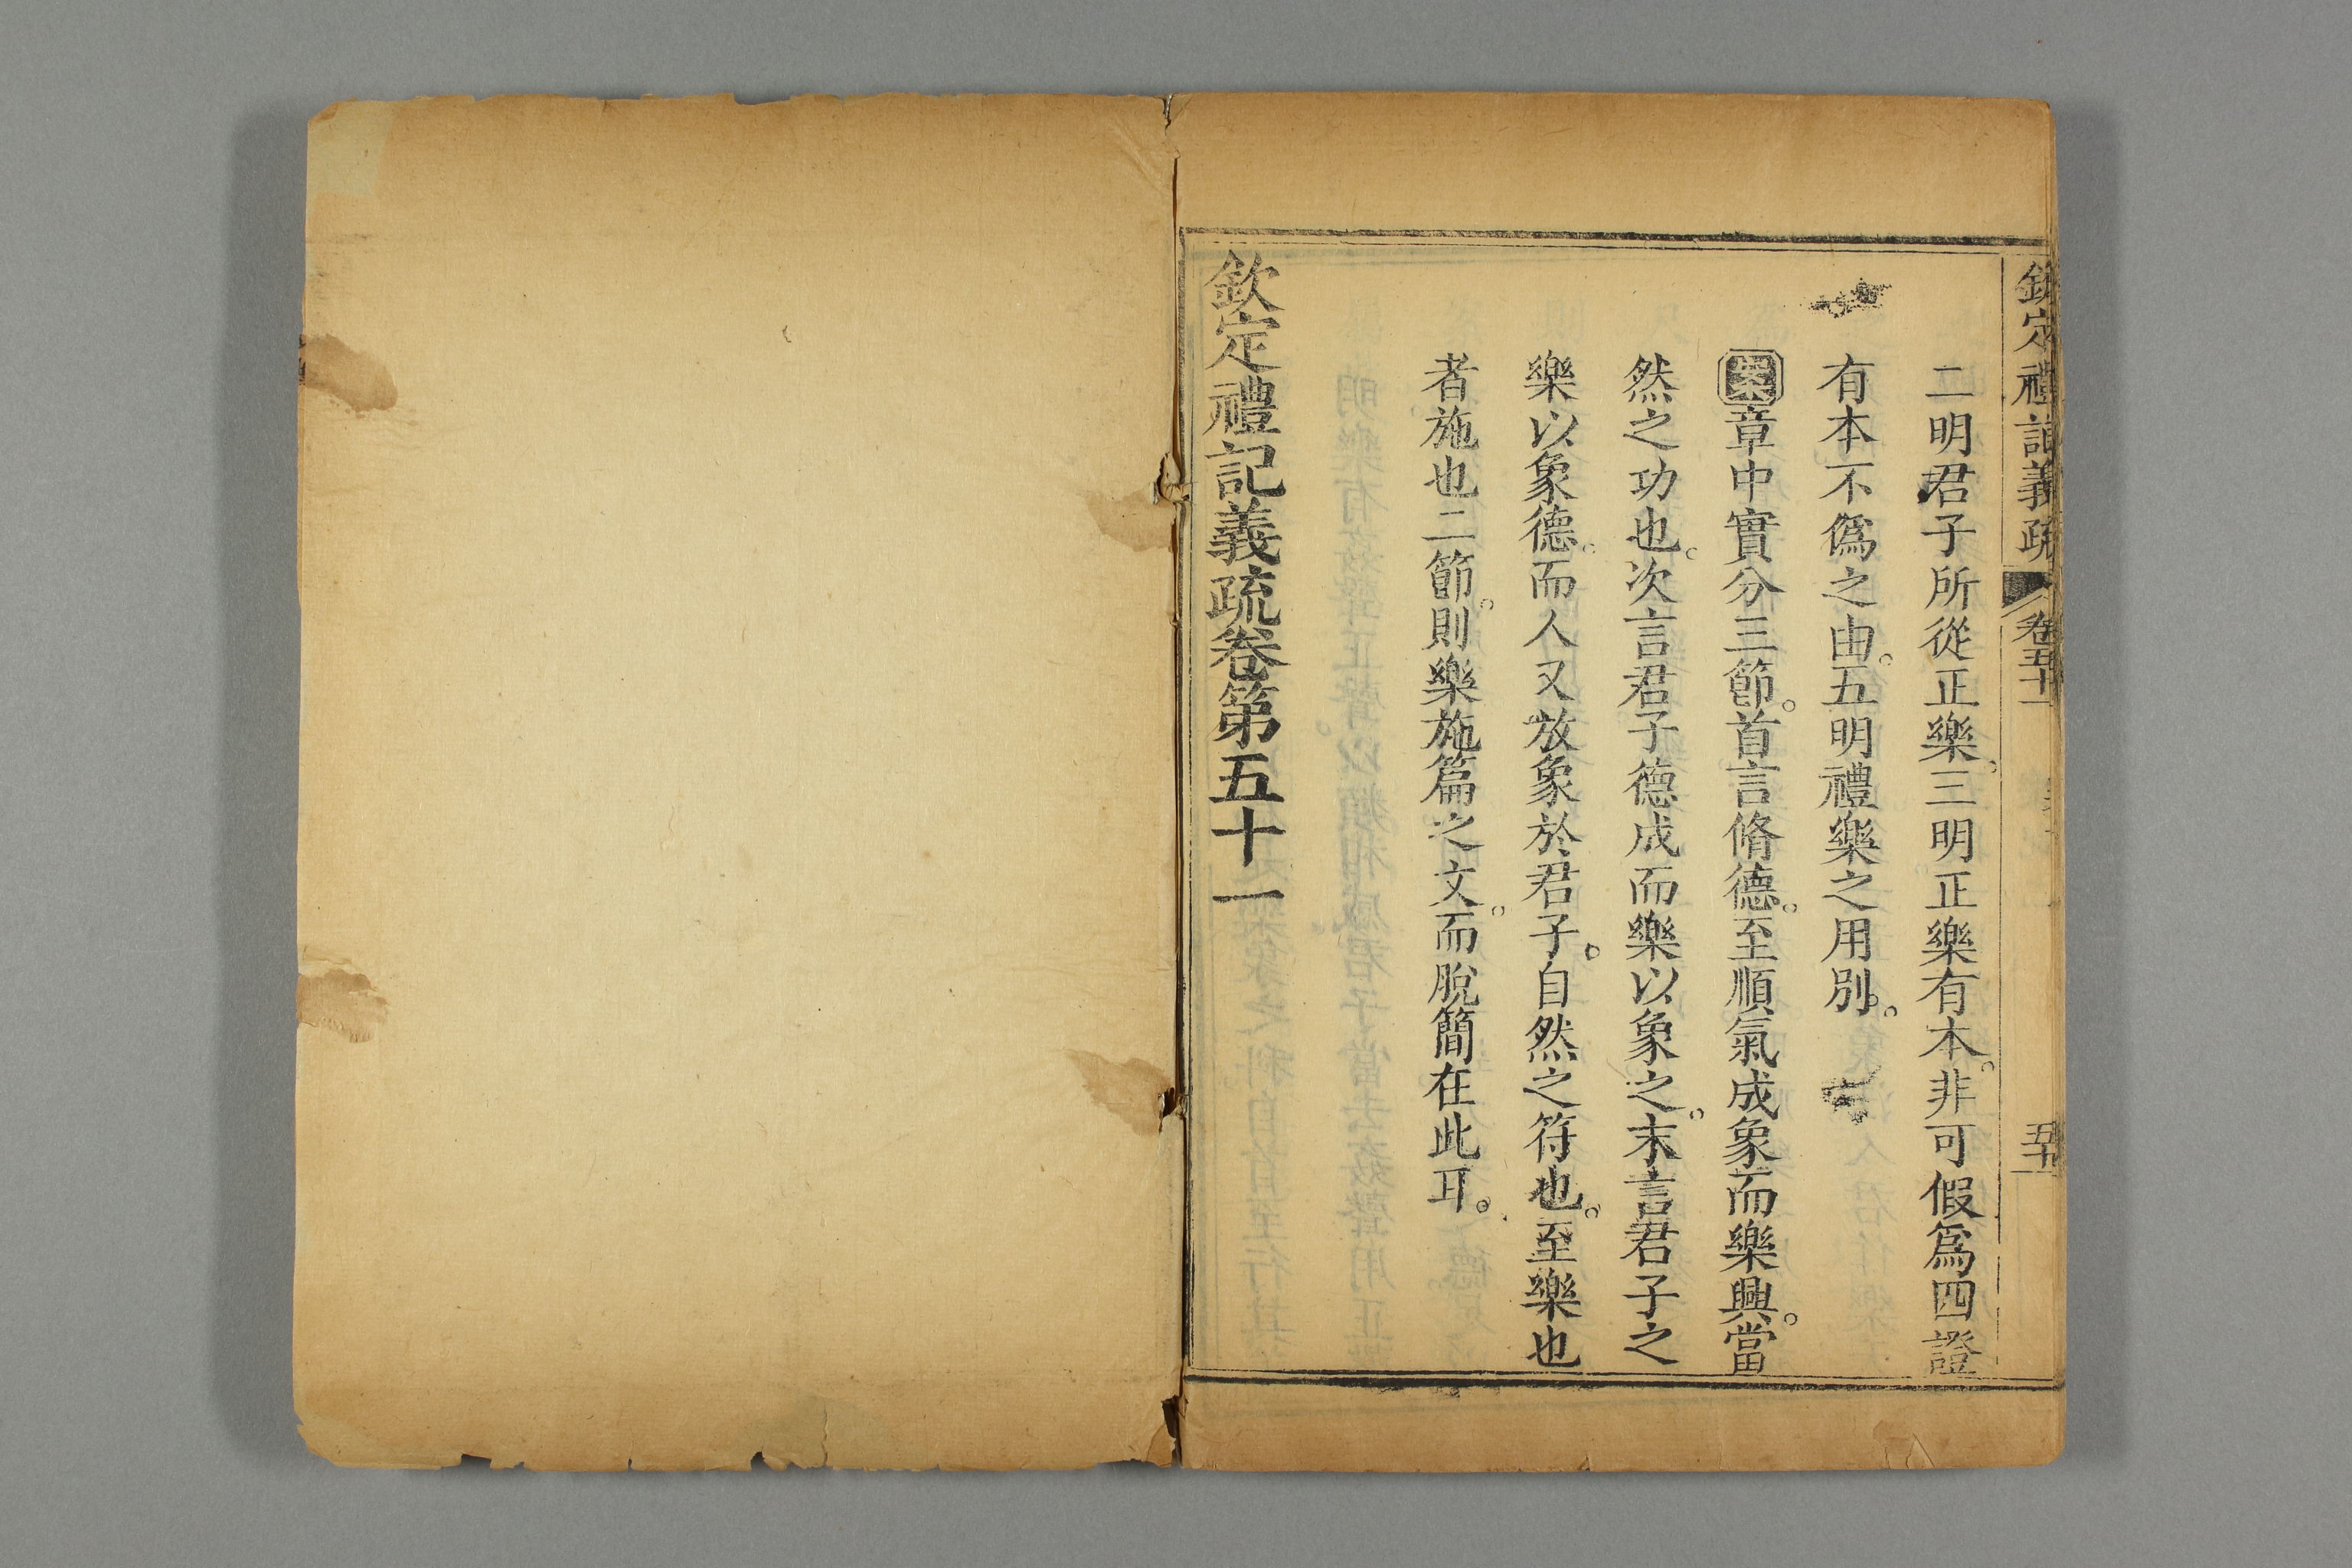 欽定禮記義疏 卷五十一 五十一
二明君子所從正樂三明正樂有本。非可假爲四證
有本不僞之由。五明禮樂之用別。
案章中實分三節。首言脩德。至順氣成象而樂興。當
然之功也。次言君子德成而樂以象之。末言君子之
樂以象德。而人又放象於君子。自然之符也。至樂也
者施也二節。則樂施篇之文。而脫簡在此耳。
欽定禮記義疏卷第五十一